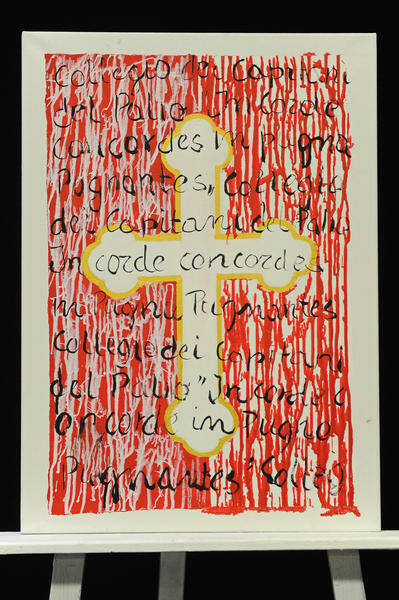 Collegio dei Capitani
del Palio "In corde
concordes in pugna
Pugnantes" Collegio
dei Capitani del Palio
In corde concordes
in Pugna Pugnantes
Collegio dei capitani
del Palio "In corde c
oncorde in Pugno
Pugnantes" Colleg